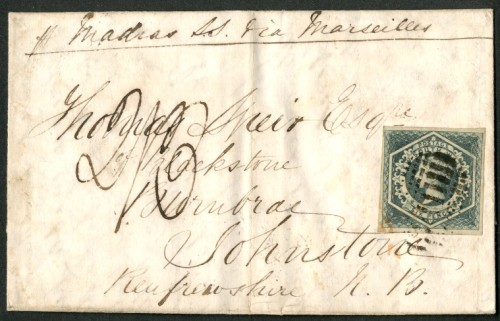 pr Madras S.S. via Marseilles
Thomas Speir Esqre
Blackstone
Burnbrae
Johnstone
Renfrewshire N. B.
POSTAGE